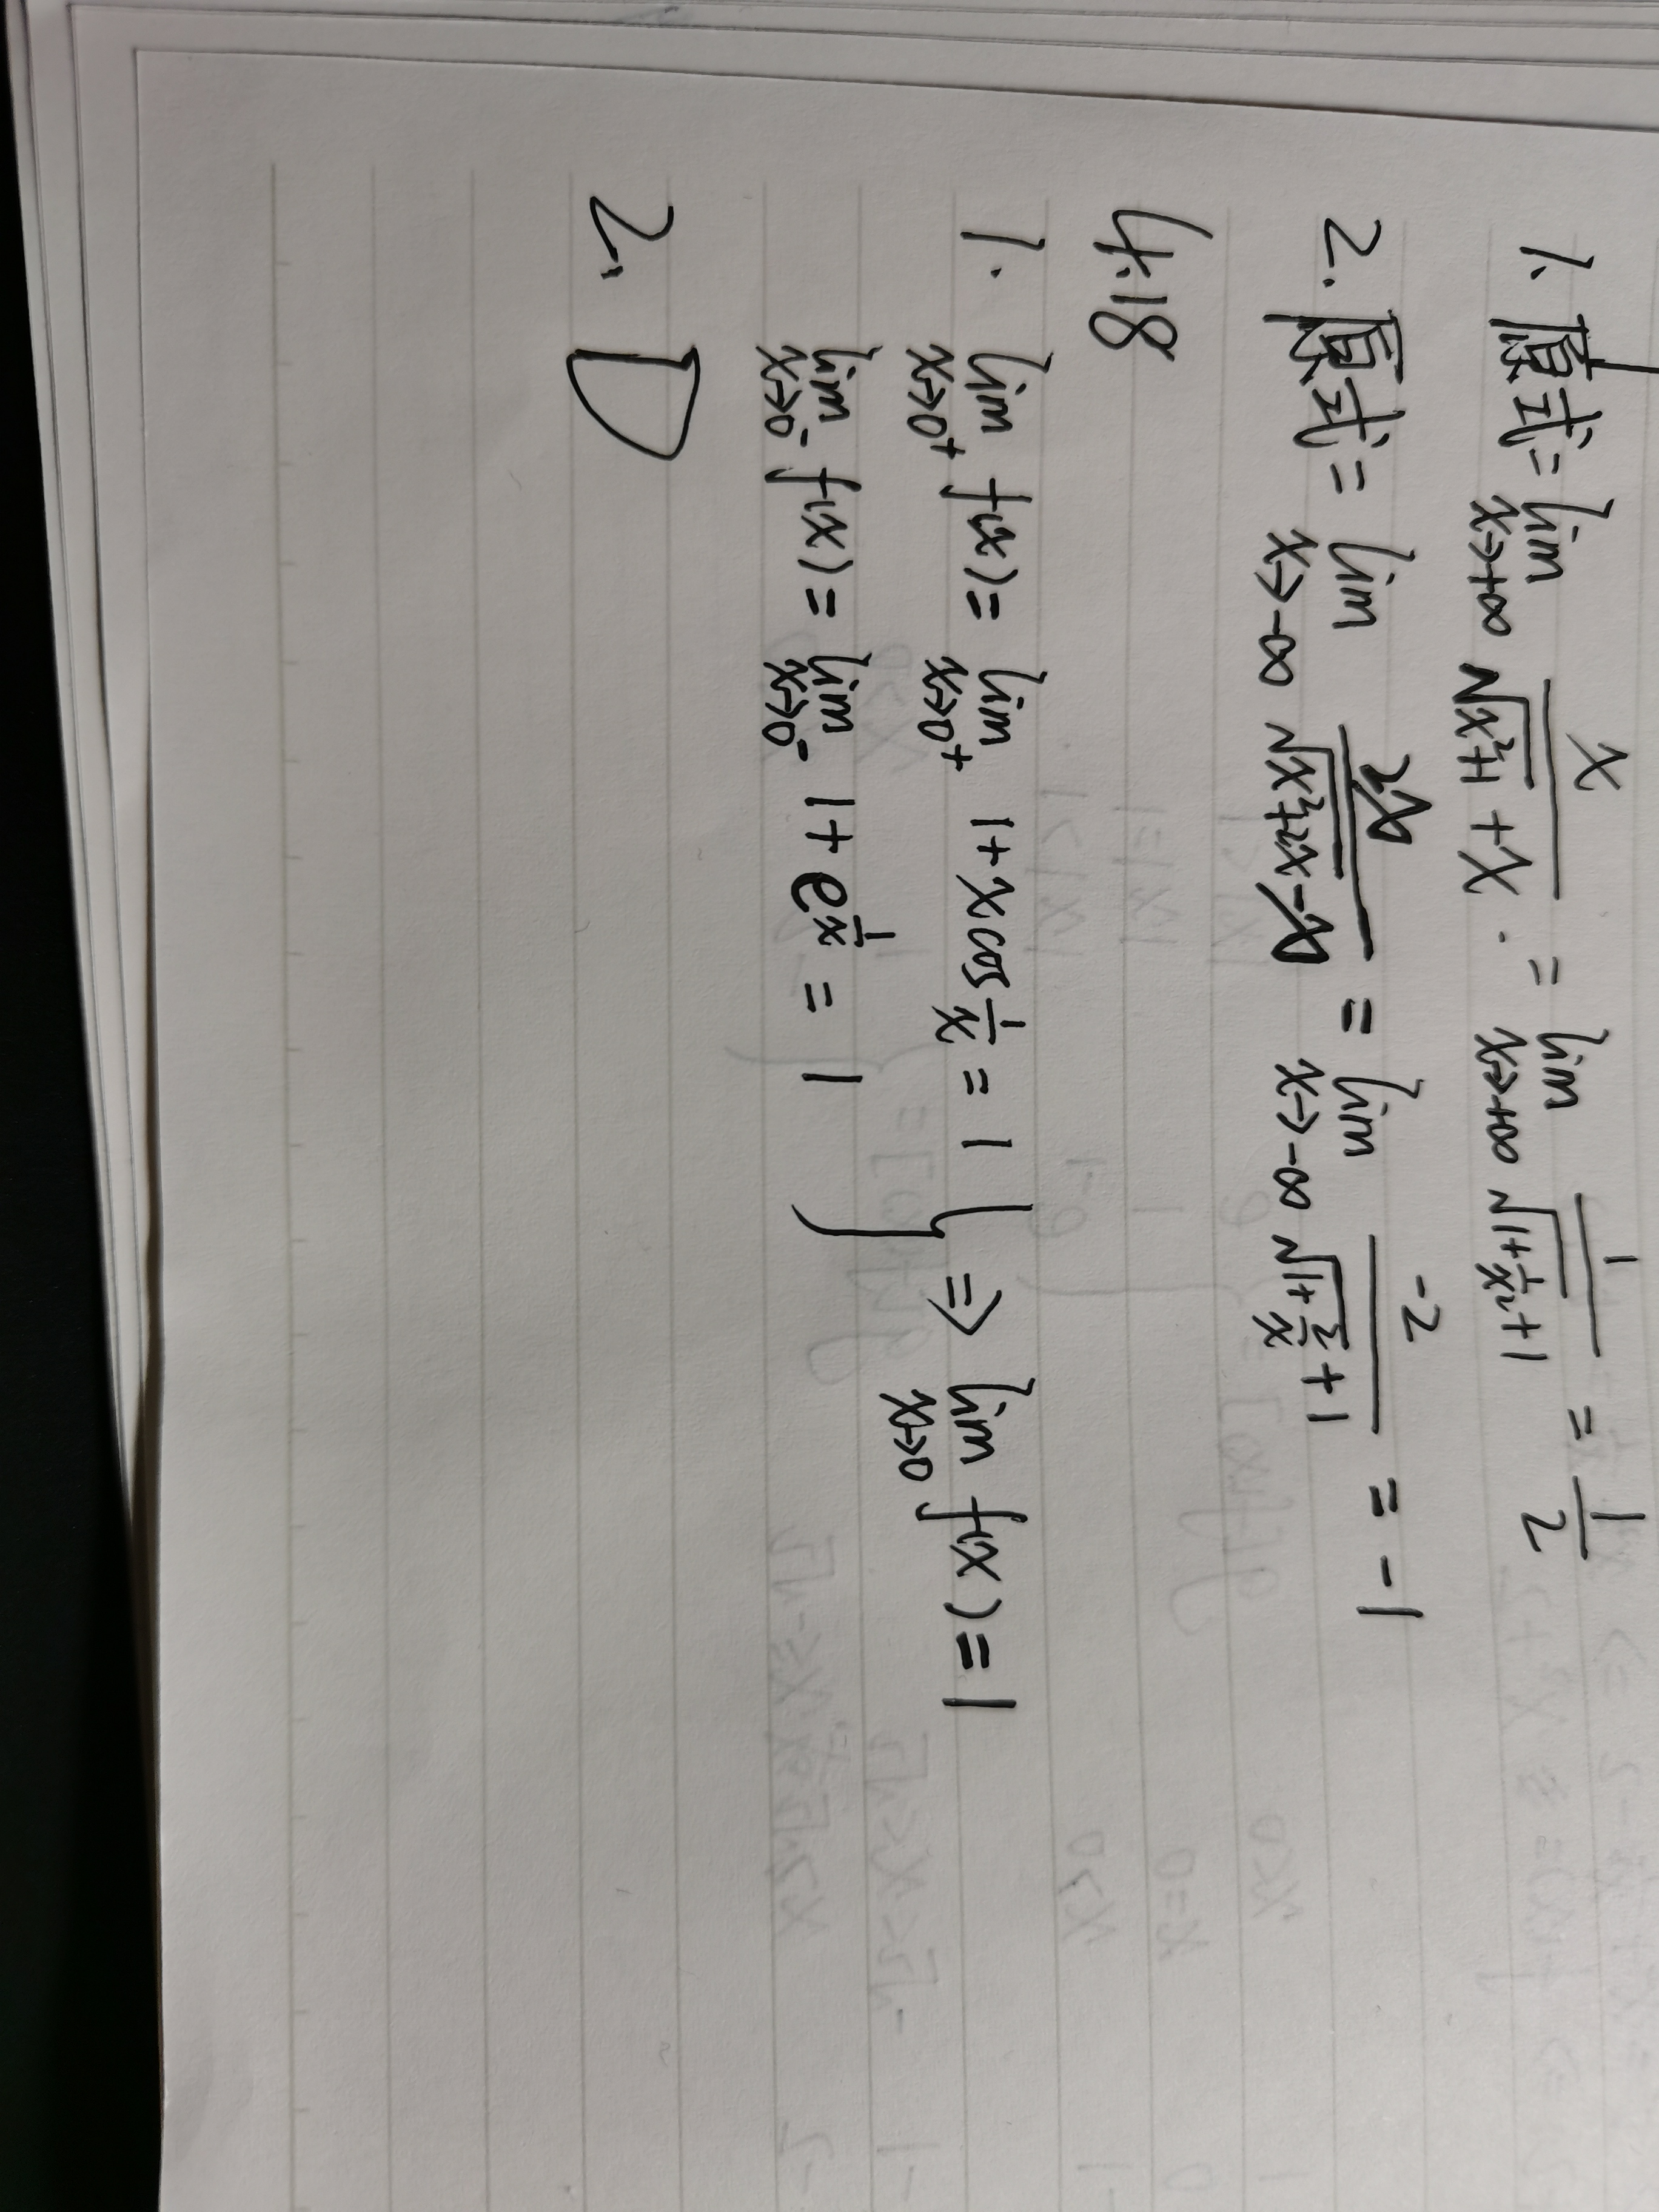 1. 原式 = lim x→+∞ x/(√(x²+1) + x) = lim x→+∞ 1/(√(1+1/x²) + 1) = 1/2
2. 原式 = lim x→-∞ 2x/(√(x²+2x) - x) = lim x→-∞ -2/(√(1+2/x) + 1) = -1
4.18
1. lim x→0⁺ f(x) = lim x→0⁺ 1 + x cos 1/x = 1 } ⇒ lim x→0 f(x) = 1
lim x→0⁻ f(x) = lim x→0⁻ 1 + e^(1/x) = 1
2. D